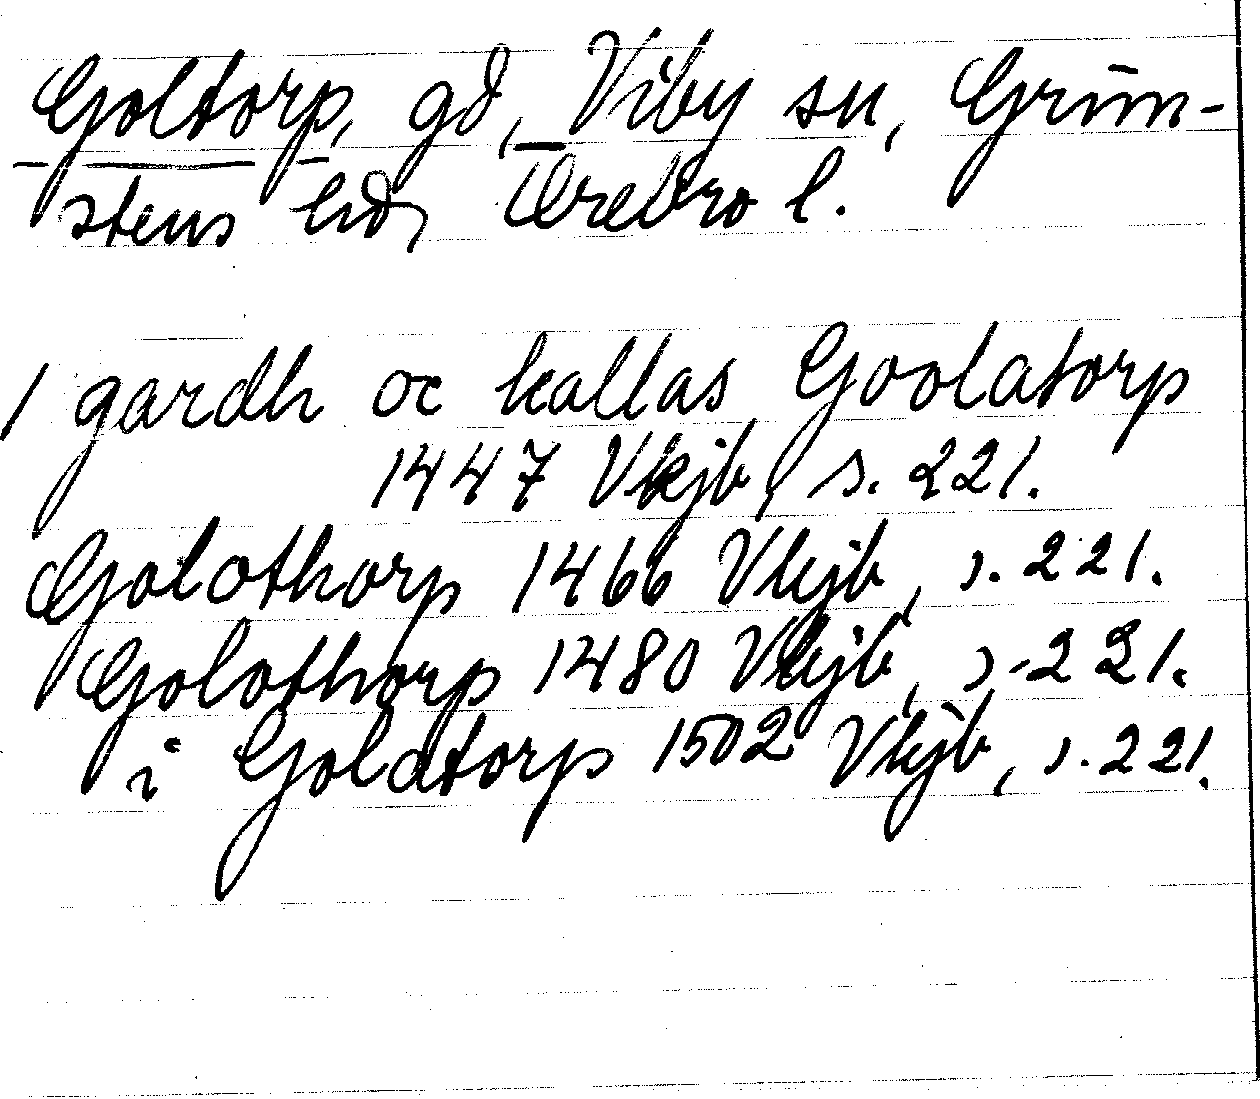 Goltorp, gd, Viby sn, Grim-
stens hd, Örebro l.
1 gardh oc kallas Goolatorp
1447 Vkjb, s. 221.
Golothorp 1466 Vkjb, s. 221.
Golothorp 1480 Vkjb, s. 221.
i Golatorp 1502 Vkjb, s. 221.